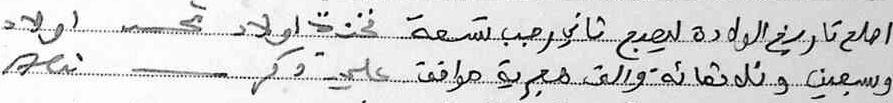 اصلح تاريخ الولادة ليصبح ثاني رجب تسعة فخذة اولاد اولاد
وسبعين وثلاثمائة والف هجرية موافق علي ذكر